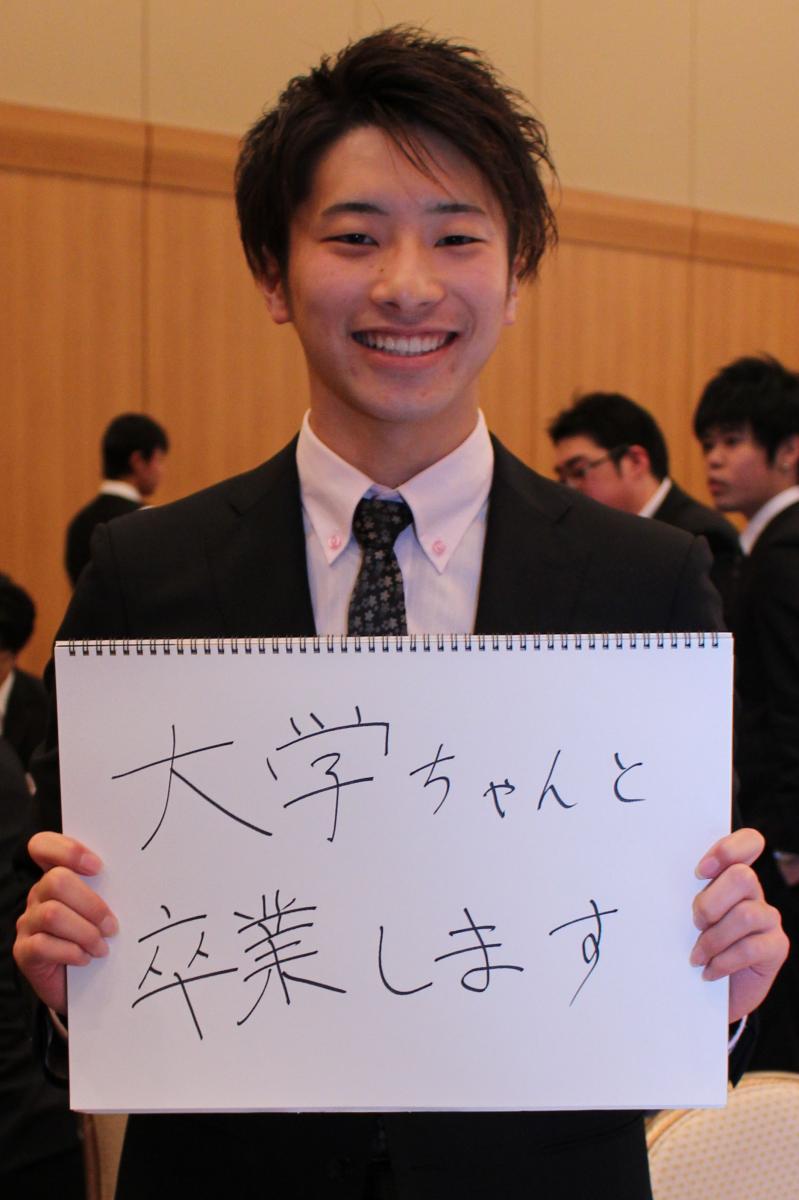 大学ちゃんと
卒業します